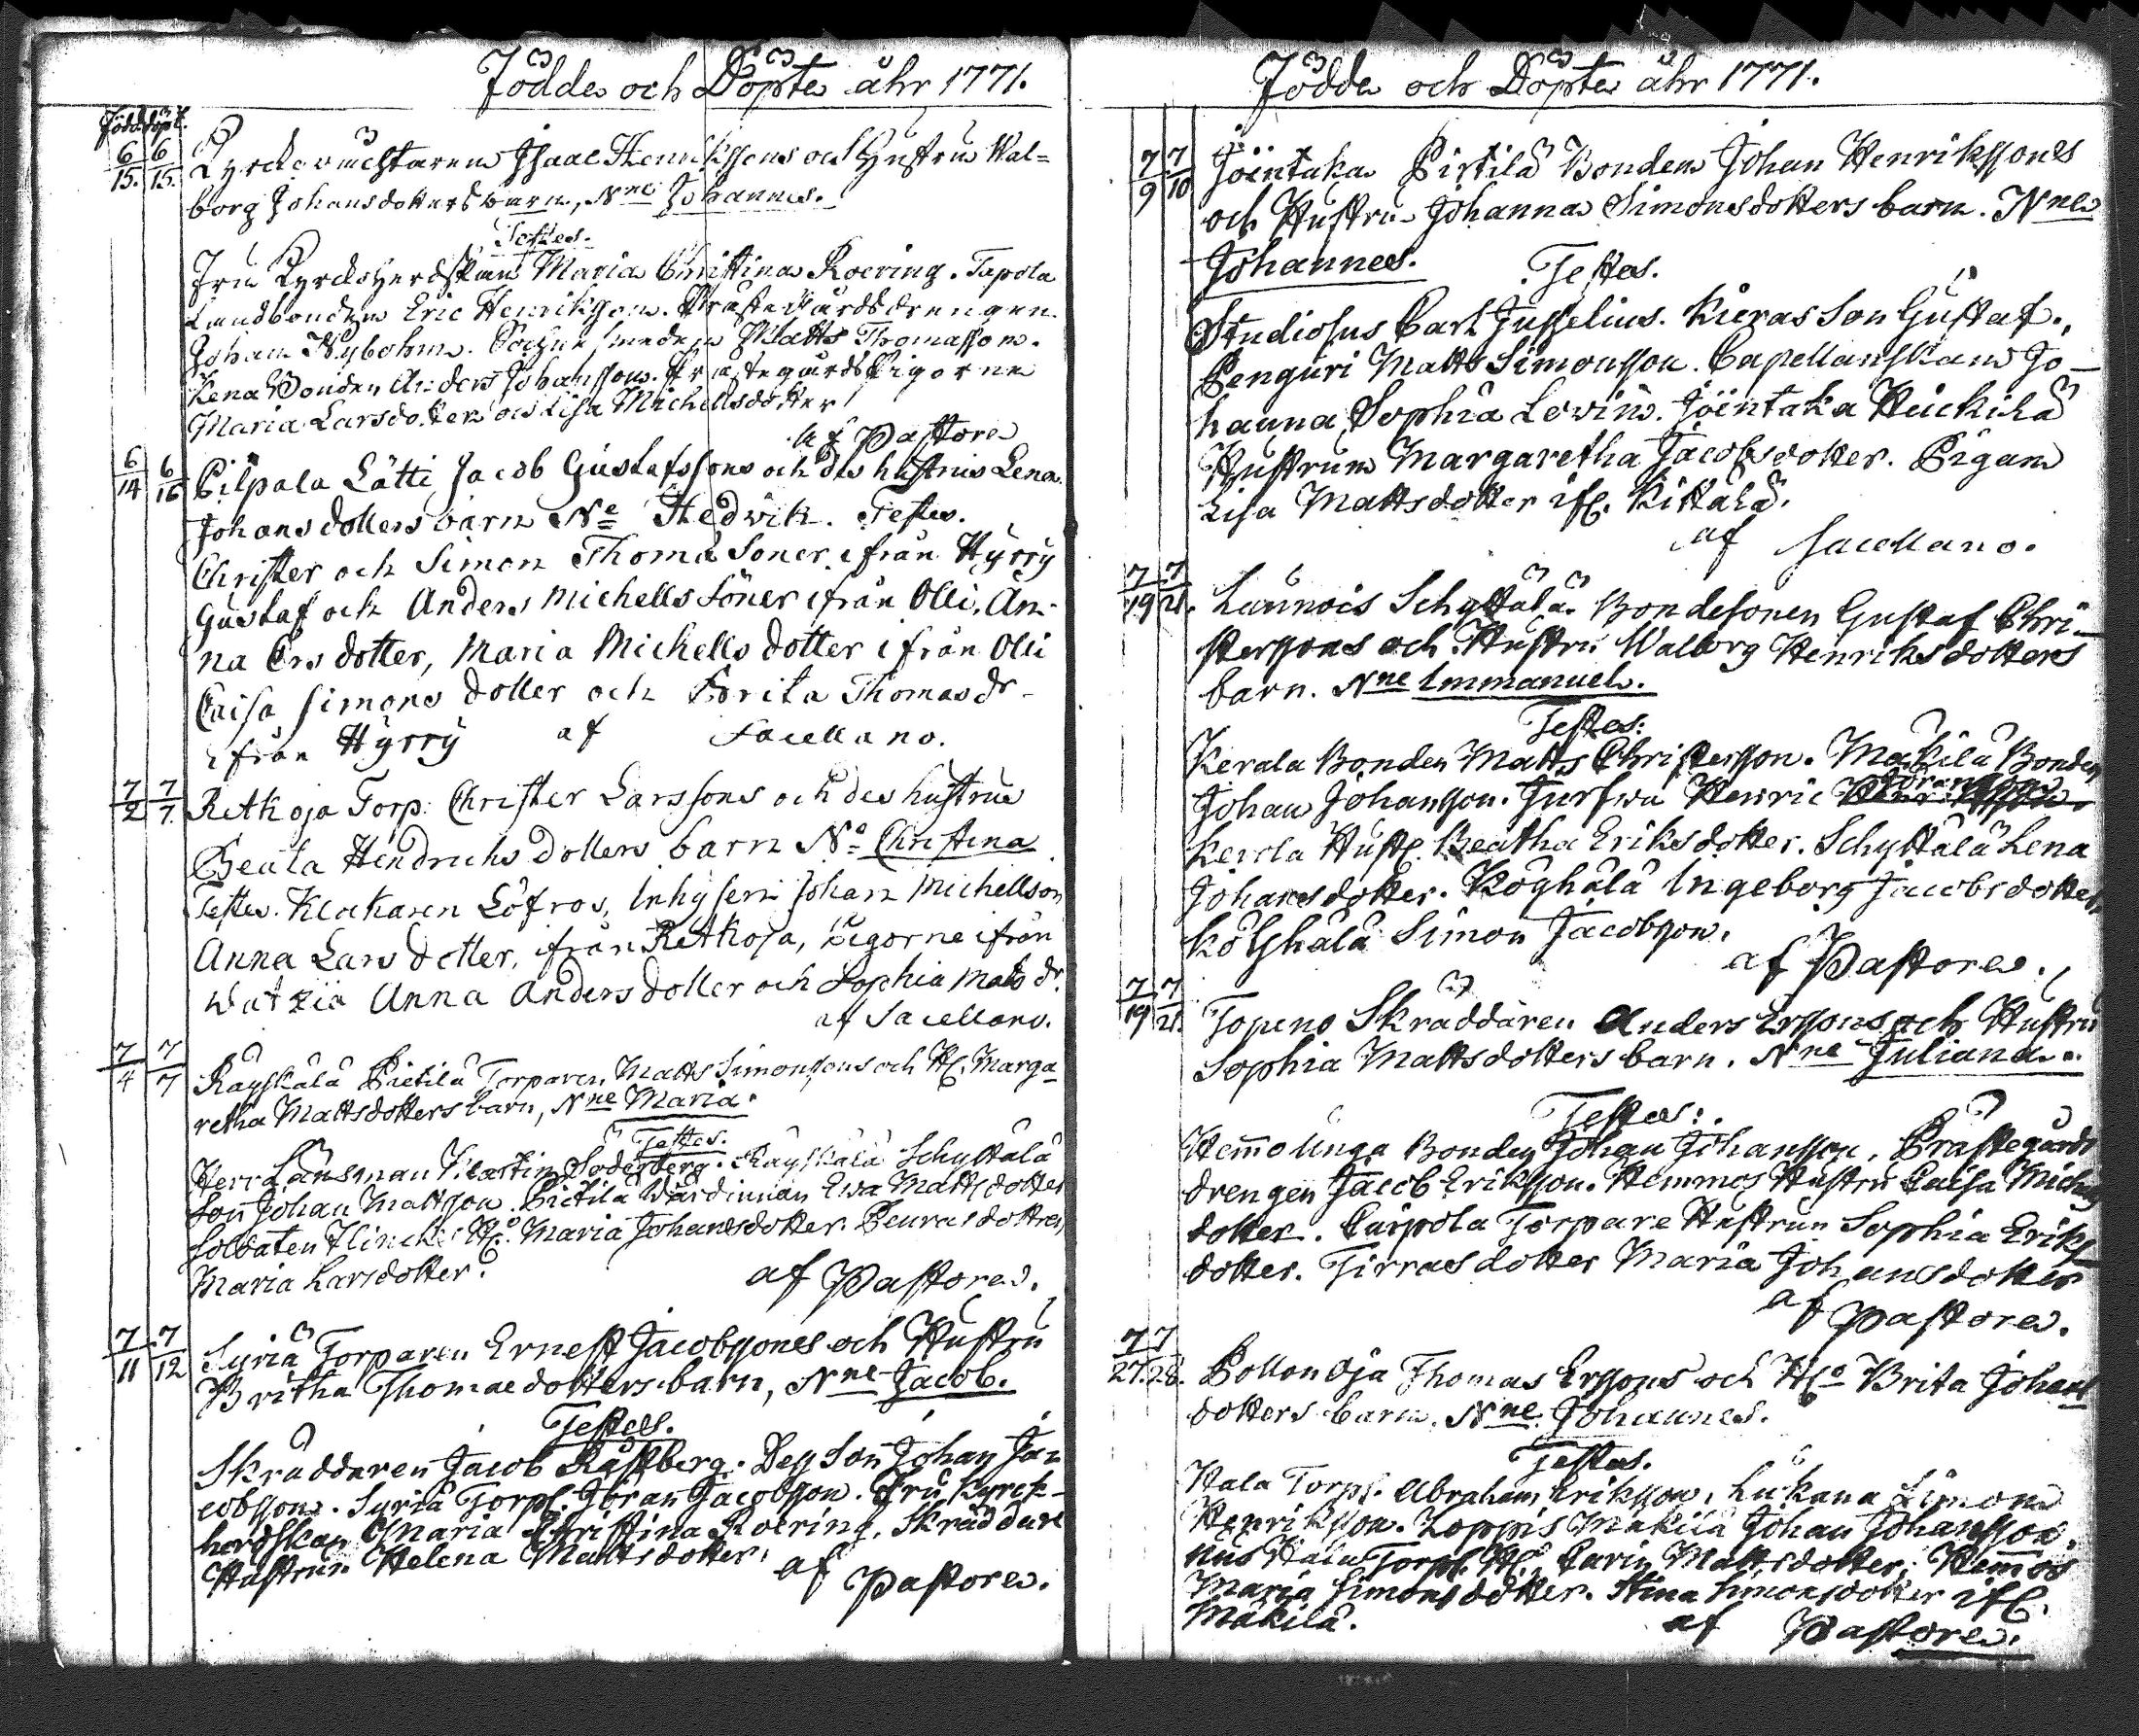 Födde och Döpte åhr 1771.
Född. döpt.
6/15. 6/15. Kyrckowächtaren Isaac Henrikssons och Hustru Wal=
borg Johansdotters barn, Nne Johannes.
Testes.
Fru Kyrckoherdskan Maria Christina Roering. Tapola
Landbonden Eric Henriksson. Prästegårdsdrengen
Johan Nybohm. Sochne smeden Matts Thomasson.
Kena Bonden Anders Johansson. Prästegårds Pigorne
Maria Larsdotter och Lisa Michellsdotter
af Pastore
6/14 6/16 Pilpala Lätti Jacob Gustafssons och des hustrus Lena
Johansdotters barn Ne Hedwik. Testes.
Christer och Simon Thomæ Söner ifrån Hyrry
Gustaf och Anders Michells Söner ifrån Olli, An-
na Ersdotter, Maria Michells dotter ifrån Olli
Caisa Simons dotter och Brita Thomasdr
ifrån Hyrry af Sacellano.
7/2 7/7. Retkoja Torp. Christer Larssons och des hustrus
Beata Hendrichs dotters barn No Christina
Testes. Klockaren Löfros, Inhysern Johan Michellson
Anna Lars dotter, ifrån Retkoja, Pigorne ifrån
Watzia Anna Andersdotter och Sophia Mats dr.
af Sacellano.
7/4 7/7 Räyskälä Pietilä Torparen Matts Simonssons och H. Marga=
retha Mattsdotters barn, Nne Maria.
Testes.
Herr Länsman Martin Söderberg. Räyskälä Schyttälä
Son Johan Mattsson. Pietilä Wärdinnan Ewa Mattsdotter
Soldaten Flincks H. Maria Johansdotter. Peuras dottren
Maria Larsdotter.
af Pastore.
7/11 7/12 Syriä Torparen Ernest Jacobssones och Hustru
Britha Thomaedotters barn, Nne Jacob.
Testes.
Skräddaren Jacob Råstberg. Dess Son Johan Ja-
cobsson. Syriä Torp. Jöran Jacobsson. Fru Kyrck-
herdskan Maria Christina Roering. Skräddare
Hustrun Helena Mattsdotter.
af Pastore.
Födde och Döpte åhr 1771.
7/9 7/10 Jöintaka Pirtilä Bonden Johan Henrikssones
och Hustru Johanna Simonsdotters barn. Nne
Johannes.
Testes.
Studiosus Carl Jusselius. Kieras Son Gustaf.,
Penguri Matts Simonsson. Capellanskan Jo-
hanna Sophia Levin. Jöintaka Huckila
Hustrun Margaretha Jacobsdotter. Pigan
Lisa Mattsdotter if. Kittälä.
af Sacellano.
7/19 7/21. Launois Schyttälä. Bondesonen Gustaf Chri-
sterssons och Hustru Walborg Henriksdotters
barn. Nne Immanuel.
Testes:
Kerala Bonden Matts Christersson. Mäkilä Bonden
Johan Johansson. Turswa Henric Göransson
Kerola Hust. Beatha Eriksdotter. Schyttälä Lena
Johansdotter. Köghälä Ingeborg Jacobsdotter,
Kölghälä Simon Jacobsson.
af Pastore.
7/19 7/21. Topeno Skräddaren Anders Erssons och Hustru
Sophia Mattsdotters barn. Nne Juliana.
Testes:
Hemmo Unga Bonden Johan Johansson. Prästegårds
drengen Jacob Eriksson. Hemmos Hustru Caisa Michels
dotter. Caipola Torpare Hustrun Sophia Eriks
dotter. Tirras dotter Maria Johansdotter
af Pastore.
7/27. 7/28. Pollonoja Thomas Erssons och H. Brita Johans
dotters barn. Nne Johannes.
Testes.
Hala Torp. Abraham Eriksson, Lukana Simon
Henriksson. Loppis Mäkilä Johan Johansson.
nus Hala Torp. H. Carin Mattsdotter. Hemmos
Maria Simonsdotter. Stina Simonsdotter if.
Mäkilä.
af Pastore.